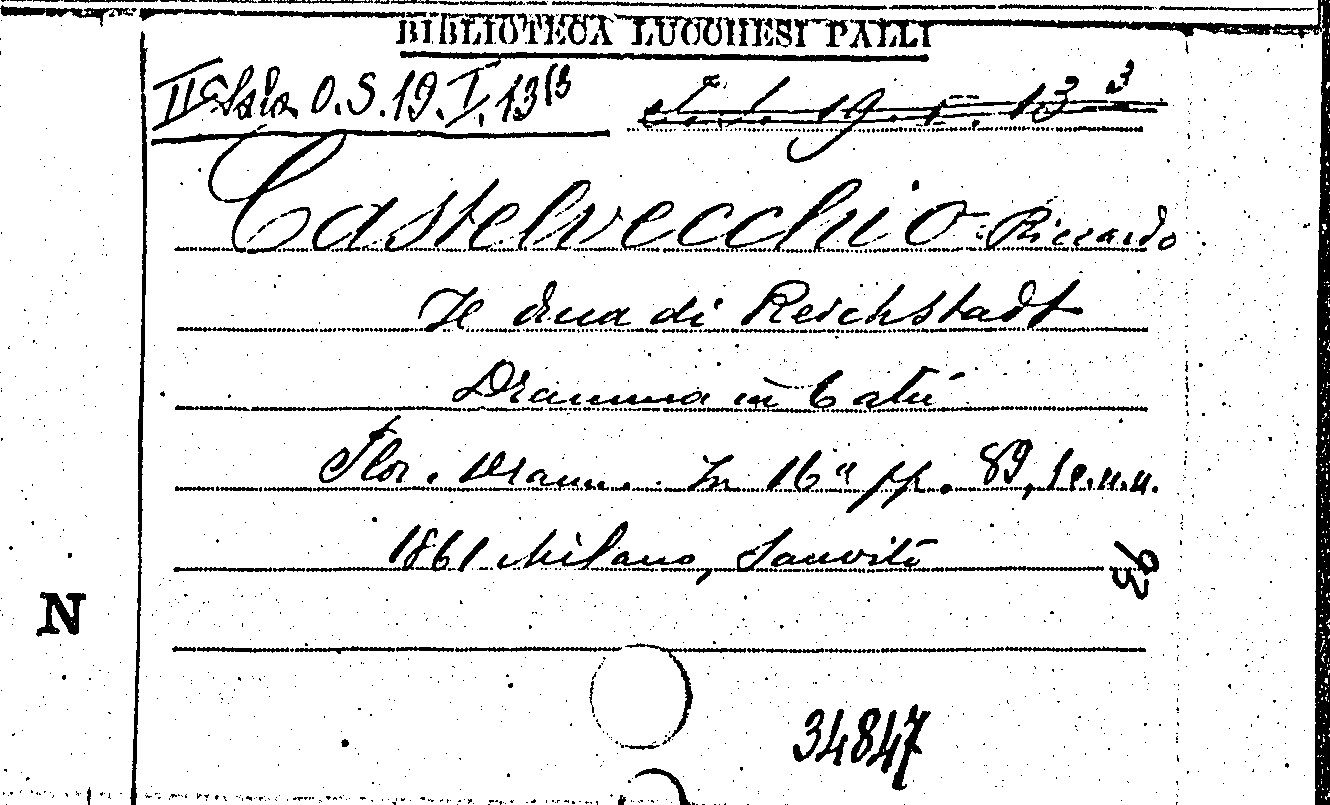 BIBLIOTECA LUCCHESI PALLI
IIª Sala O.S.19.I.13(3
19. I. 13 3
Castelvecchio Riccardo
Il duca di Reichstadt
Dramma in 6 atti
Flor. Dramm. In 16º pp. 89, 1 c.n.n.
1861 Milano, Sanvito
N
34847